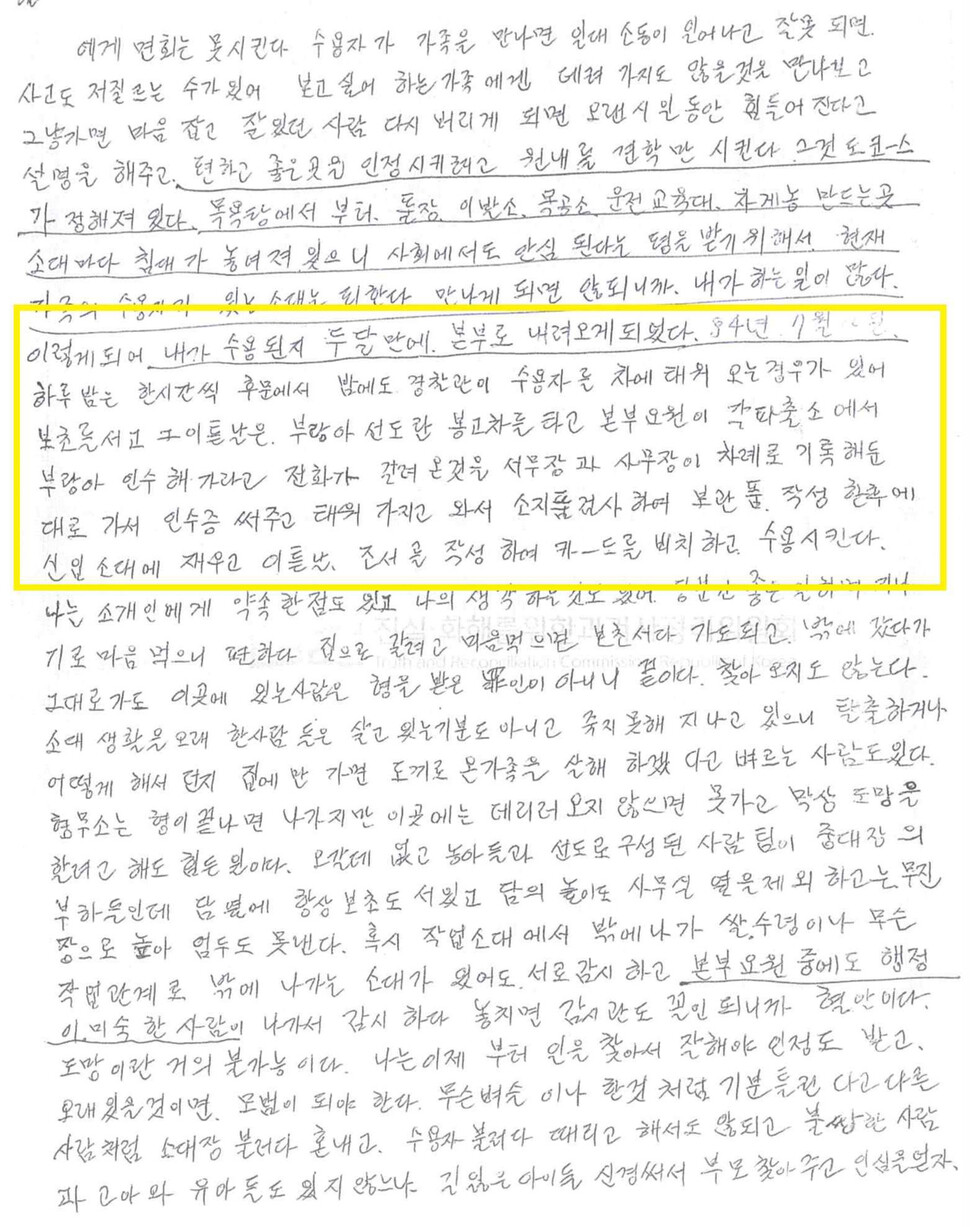 에게 면회는 못시킨다 수용자가 가족을 만나면 일대 소동이 일어나고 잘못 되면.
사고도 저질르는 수가 있어 보고 싶어 하는 가족에겐 데려 가지도 않을것을 만나보고
그냥가면 마음 잡고 잘있던 사람 다시 버리게 되면 오랜시일동안 힘들어 진다고
설명을 해주고. 편하고 좋은곳을 인정시키려고 원내를 견학만 시킨다 그것도코-스
가 정해져 있다. 목욕탕에서 부터. 이발소. 목공소. 운전교육대. 자개농 만드는곳
소대마다 침대가 놓여져 있으니 사회에서도 안심 된다는 평을 받기위해서. 현재
가족의 수용자가 있는소대는 피한다 만나게 되면 않되니까. 내가하는일이 많다.
이렇게되어 내가 수용된지 두달만에. 본부로 내려오게되었다. 84년
하루밤은 한시간씩 후문에서 밤에도 경찰관이 수용자를 차에태워 오는경우가 있어
보초를서고 그이튿날은. 부랑아 선도란 봉고차를 타고 본부요원이 각파출소에서
부랑아 인수해가라고 전화가 걸려 온것을 서무장과 사무장이 차례로 기록해둔
대로 가서 인수증 써주고 태워 가지고 와서 소지품검사하여 보관품. 작성 한후에
신입 소대에 재우고 이튿날. 조서를 작성하여 카-드를 비치하고 수용시킨다.
나는 소개인에게 약속한점도 있고 나의 생각
기로 마음 먹으니 편하다 집으로 갈려고 마음먹으면 보초서다 가도되고. 밖에 갔다가
그대로가도 이곳에 있는사람은 형을 받은 罪인이 아니니 끝이다. 찾아 오지도 않는다.
소대 생활을 오래 한사람 들은 살고 있는기분도 아니고 죽지못해 지나고 있으니 탈출하거나
어떻게 해서 던지 집에만 가면 도끼로 온가족을 살해 하겠 다고 벼르는 사람도있다.
형무소는 형이끝나면 나가지만 이곳에는 데리러오지 않으면 못가고 막상 도망을
할려고 해도 힘든일이다. 오갈데 없고 농아들과 선도로구성된 사람 팀이 중대장 의
부하들인데 담옆에 항상보초도 서있고 담의 높이도 사무실 옆을제외 하고는무진
장으로 높아 엄두도 못낸다. 혹시 작업소대에서 밖에나가 쌀.수령이나 무슨
작업관계로 밖에 나가는 소대가 있어도. 서로감시 하고 본부요원 중에도 행정
이.미숙한 사람이 나가서 감시 하다 놓치면 감시관도 되니까 혈안이다.
도망이란 거의 불가능이다. 나는이제 부터 인을 찾아서 잘해야 인정도 받고.
오래있을것이면. 모범이 되야 한다. 무슨벼슬 이나 한것 처럼 기분들린 다고 다른
사람처럼 소대장 불러다 혼내고. 수용자 불러다 때리고 해서도 않되고 불쌍한 사람
과 고아와 유아 들도 있지 않느냐. 길잃은 아이들 신경써서 부모찾아주고 인심을얻자.